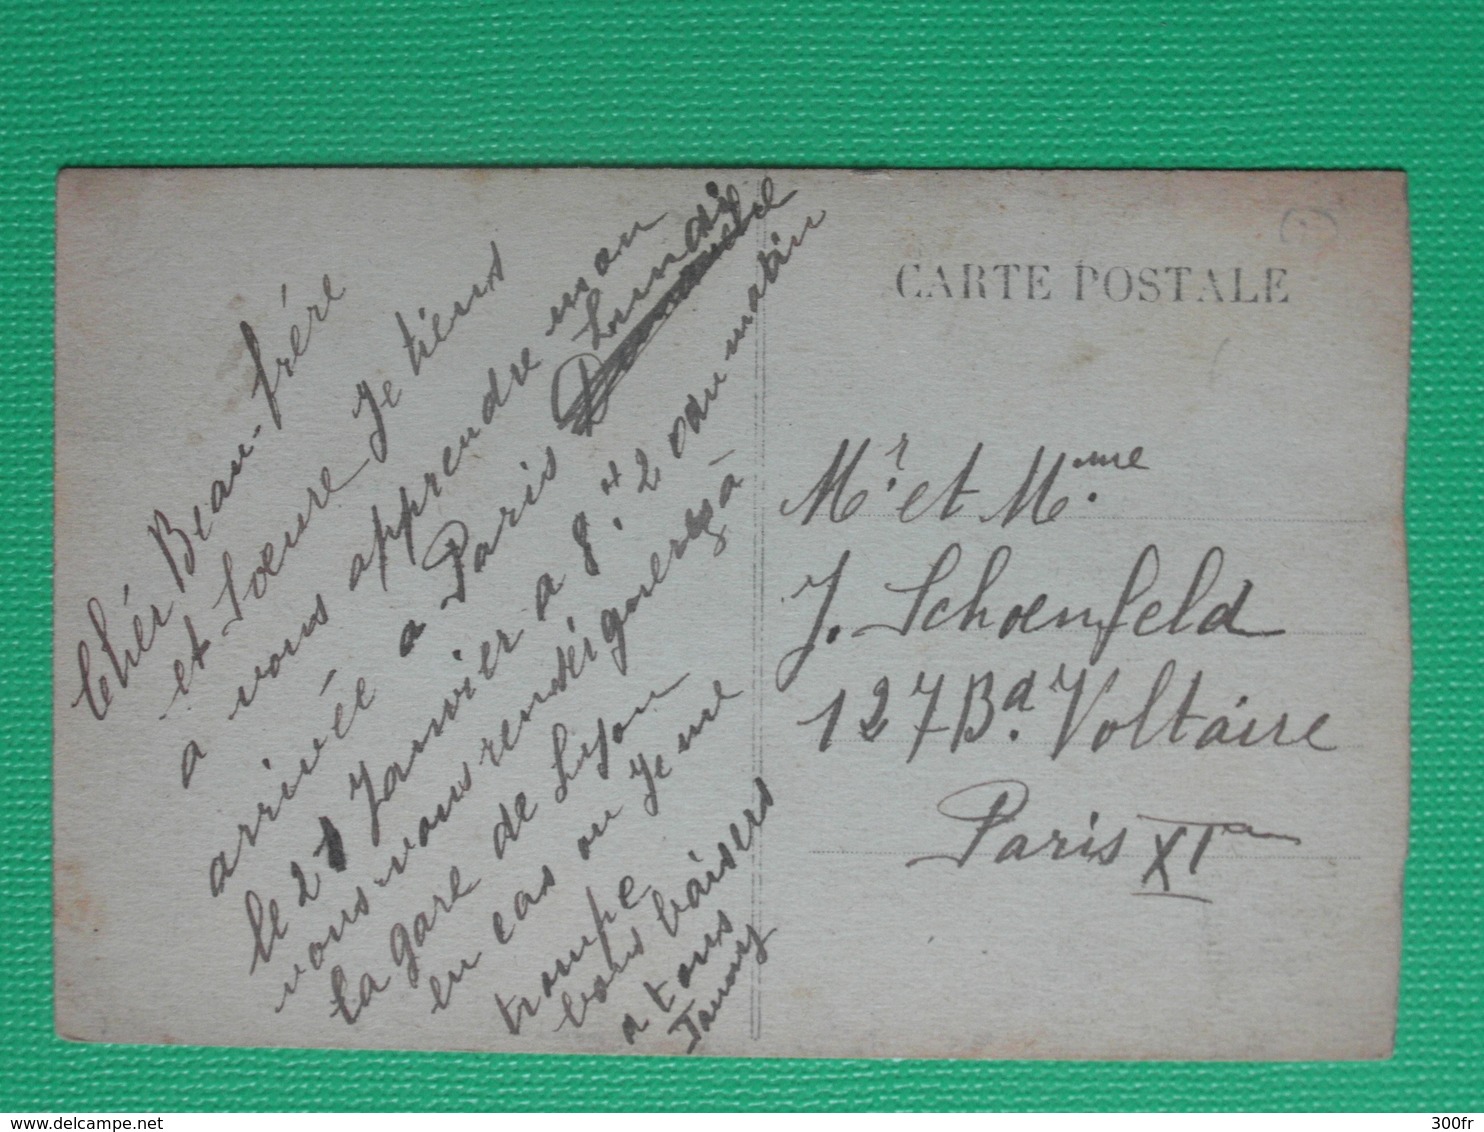 Chér Beau-frére
et Soeure Je tiens
a vous apprendre mon
arrivée a Paris Lundi
le 21 Janvier a 8.H 2 au matin
vous vous rendéi gareresà
la gare de Liyon
en cas ou je me
trompe
bons baisers
a tous
CARTE POSTALE
Mr. et Mme.
J. Schoenfeld
127 Bd. Voltaire
Paris XI
delcampe.net
300fr